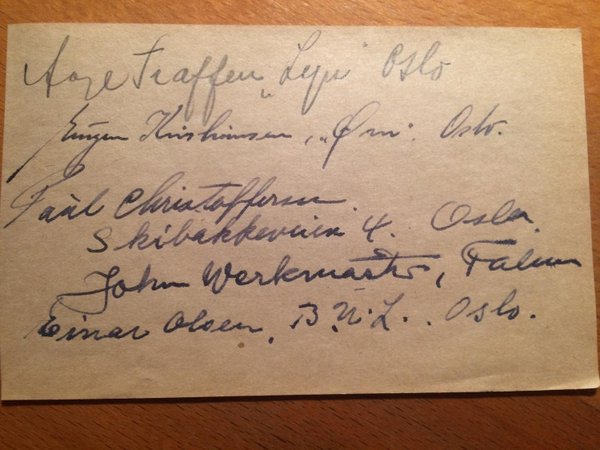 Aage Traffen „Lyn" Oslo
Eugen Kristiansen, „Ørn". Oslo.
Paul Christoffersen.
Skibakkeveien 4. Oslo.
John Werkmaster, Falun
Einar Olsen. B.U.L.. Oslo.